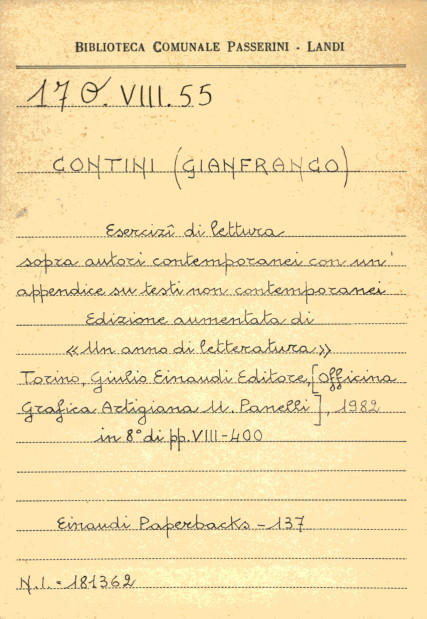 BIBLIOTECA COMUNALE PASSERINI - LANDI
17 O. VIII. 55
CONTINI (GIANFRANCO)
Esercizî di lettura
sopra autori contemporanei con un'
appendice su testi non contemporanei
Edizione aumentata di
«Un anno di letteratura»
Torino, Giulio Einaudi Editore, [Officina
Grafica Artigiana U. Panelli], 1982
in 8° di pp. VIII-400
Einaudi Paperbacks - 137
N.I. - 181362